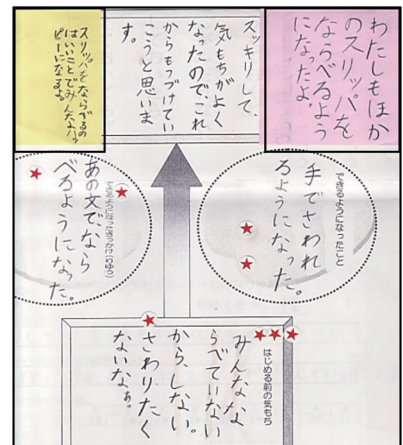 わたしもほか
のスリッパを
ならべるよう
になったよ。
スッキリして、
気もちがよく
なったので、これ
からもつづけてい
こうと思いま
す。
スリッパをならべるの
はいいことでみんなハッ
ピーになるよ。
できるようになったこと
手でさわれ
るようになった。
あの文で、なら
べるようになった。
はじめる前の気もち
みんなな
らべていない
から、しない。
さわりたく
ないなぁ。